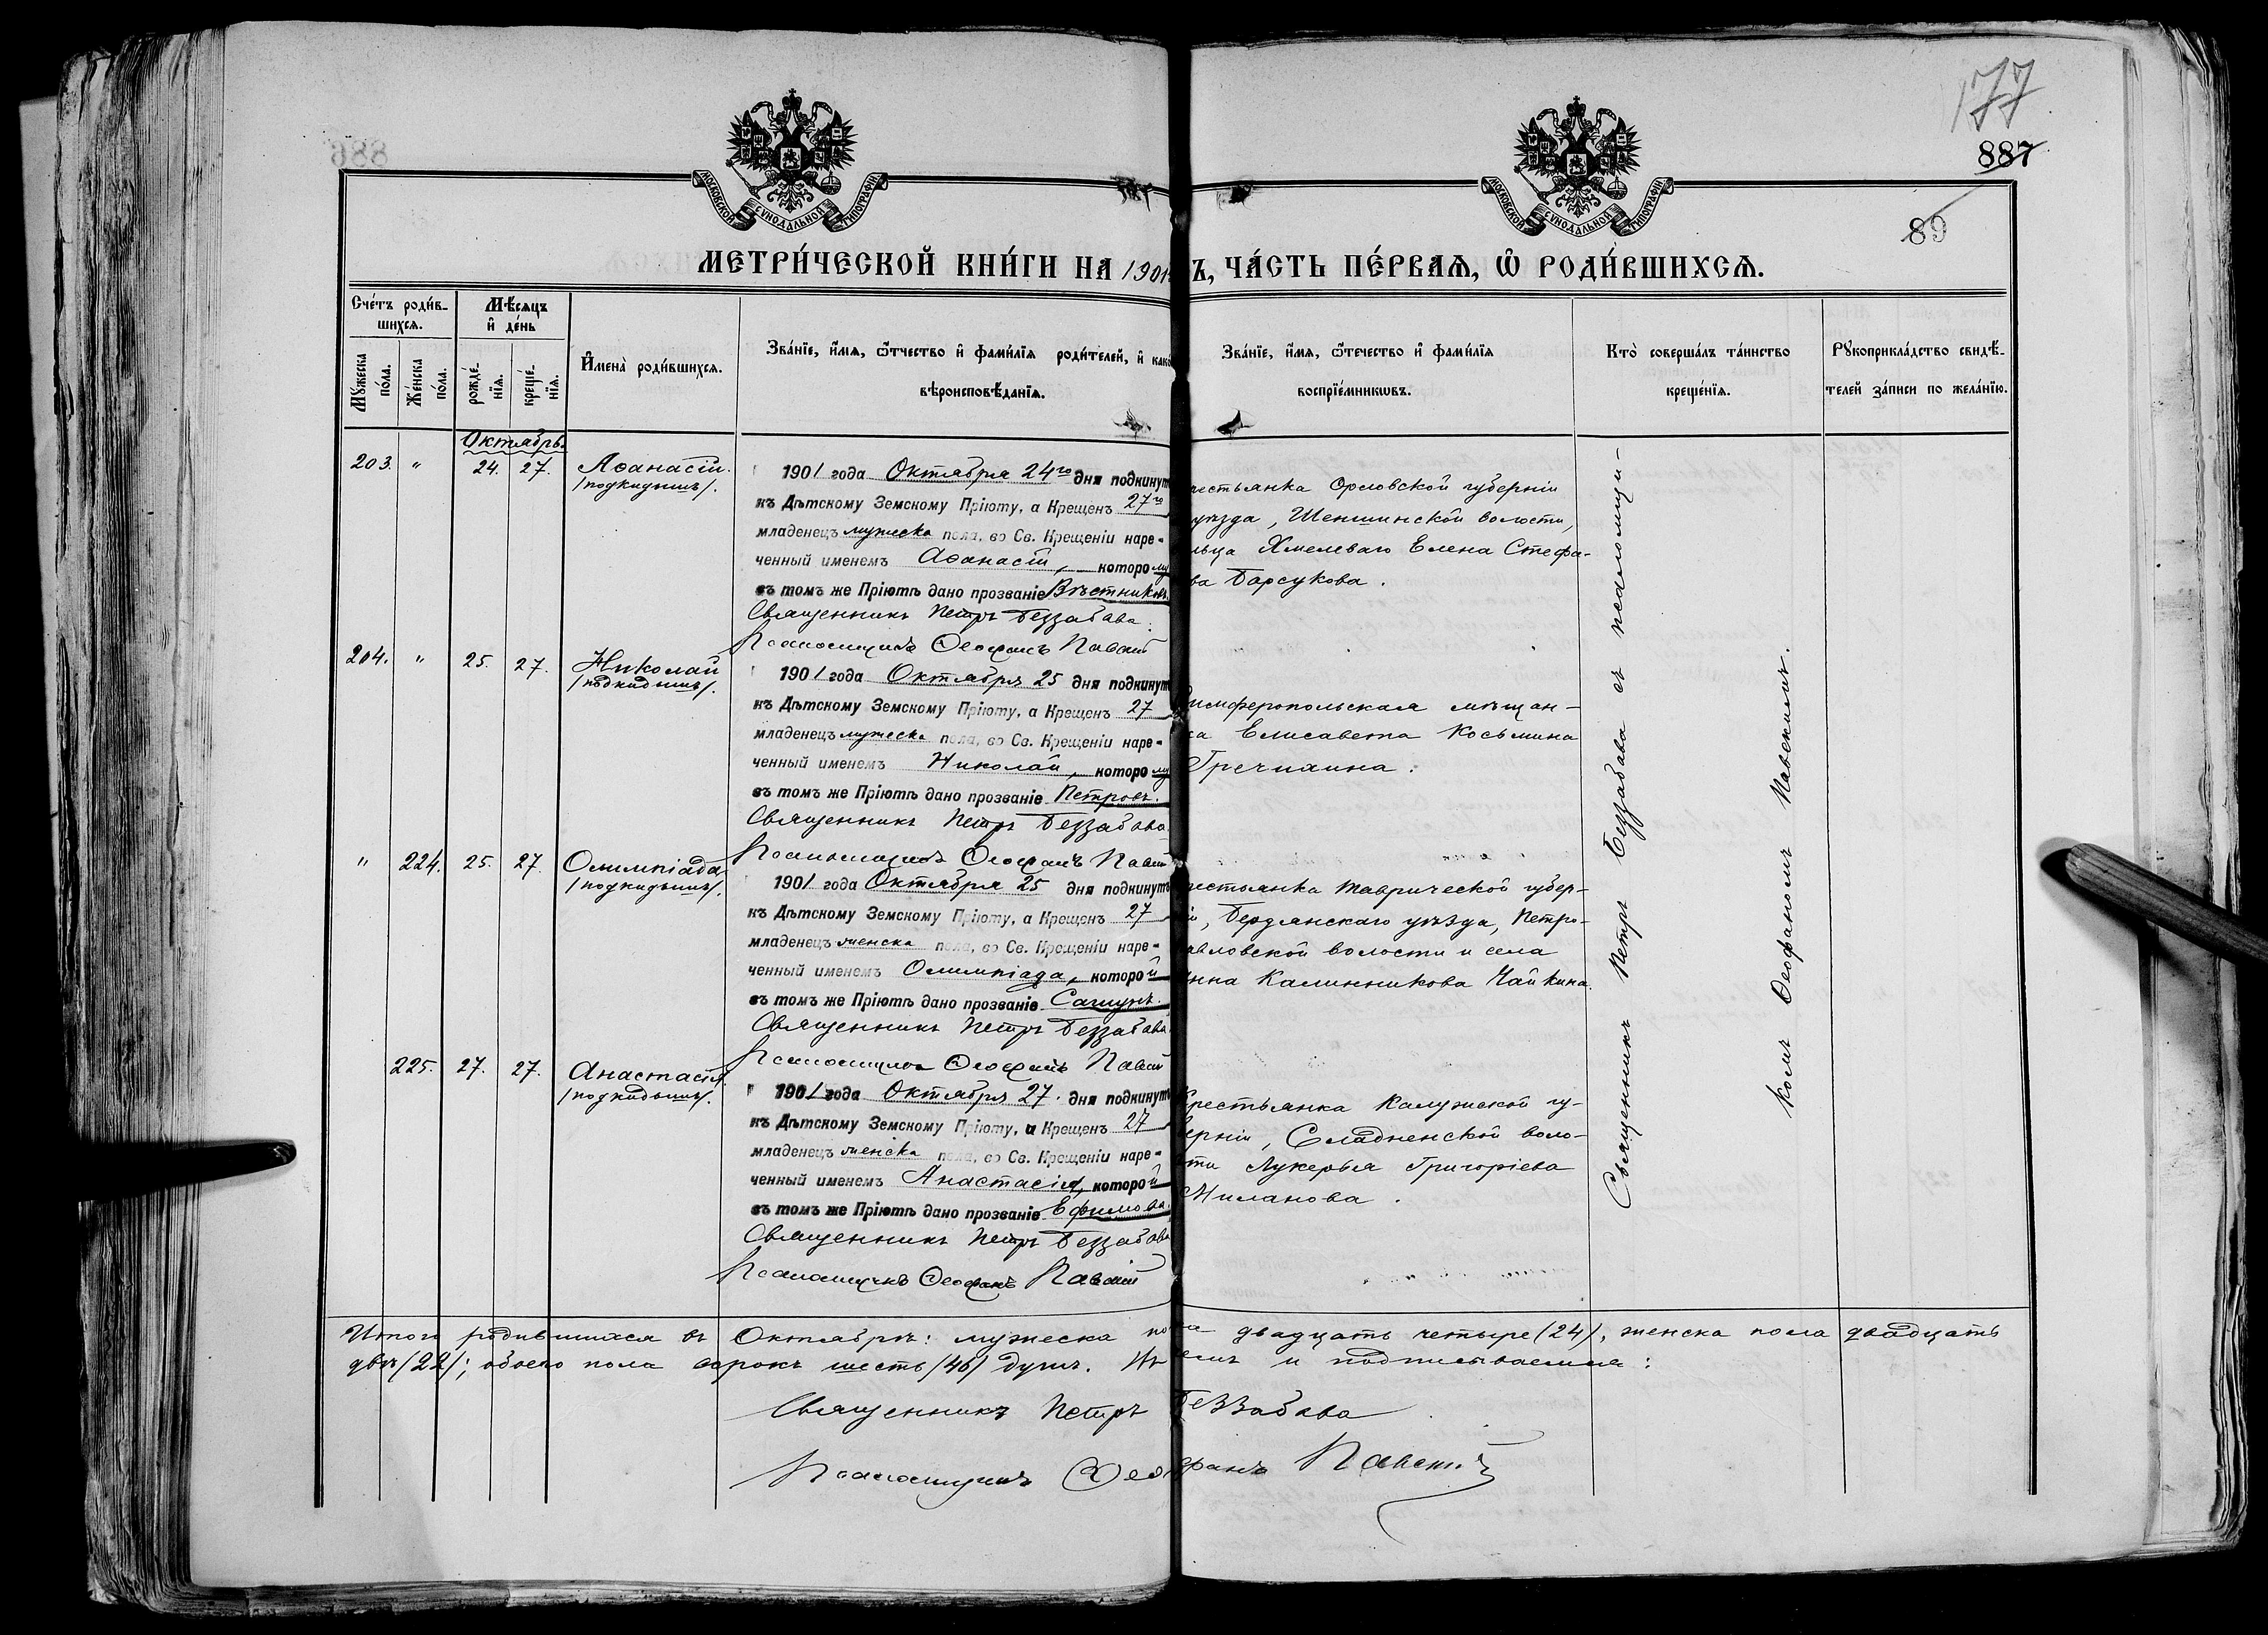 177
887
89
886
МОСКОВСКОЙ СѴНОДАЛЬНОЙ ТИПОГРАФІИ
МОСКОВСКОЙ СѴНОДАЛЬНОЙ ТИПОГРАФІИ
МЕТРИ́ЧЕСКОЙ КНИ́ГИ НА 1901 Ъ, ЧА́СТЬ ПЕ́РВАЯ, Ѡ҆ РОДИ́ВШИХСЯ.
Сче́тъ роди́в-
шихся.
Мѣ́сяцъ
и҆ де́нь
Му́жеска по́ла.
Же́нска по́ла.
рожде́-
нїя.
креще́-
нїя.
И҆мена̀ роди́вшихся.
Зва́нїе, и҆́мя, ѻ҆́тчество и҆ фами́лїя роди́телей, и҆ како
вѣроисповѣ́данїя.
Зва́нїе, и҆́мя, ѻ҆́течество и҆ фами́лїя
воспрїе́мникѡвъ.
Кто̀ соверша́лъ та́инство
креще́нїя.
Рукоприкла́дство свидѣ́-
телей за́писи по жела́нїю.
Октябрь
203. " 24. 27. Аѳанасій.
/подкидышъ/.
1901 года Октября 24го дня подкинут
къ Дѣтскому Земскому Пріюту, а Крещенъ 27го
младенецъ мужеска пола, во Св. Крещеніи наре-
ченный именемъ Аѳанасій, которому
въ томъ же Пріютѣ дано прозваніе Вѣстниковъ.
Священникъ Петръ Беззабава.
Псаломщикъ Ѳеофанъ Павскій
рестьянка Орловской губерніи
уѣзда, Шеншинской волости,
льца Хмелеваго Елена Стефа-
ва Барсукова.
204. " 25. 27. Николай
/подкидышъ/.
1901 года Октября 25 дня подкинут
къ Дѣтскому Земскому Пріюту, а Крещенъ 27
младенецъ мужеска пола, во Св. Крещеніи наре-
ченный именемъ Николай, которому
въ томъ же Пріютѣ дано прозваніе Петровъ.
Священникъ Петръ Беззабава
Псаломщикъ Ѳеофанъ Павск
имферопольская мѣщан-
ка Елисавета Косьмина
" 224. 25. 27. Олимпіада
/подкидышъ/.
1901 года Октября 25 дня подкинутъ
къ Дѣтскому Земскому Пріюту, а Крещенъ 27
младенецъ женска пола, во Св. Крещеніи наре-
ченный именемъ Олимпіада, которой
въ томъ же Пріютѣ дано прозваніе
Священникъ Петръ Беззабава
Псаломщикъ Ѳеофанъ Павск
рестьянка Таврической губер-
іи, Бердянскаго уѣзда, Петро-
авловской волости и села
нна Калинникова Чайкина.
225. 27. 27. Анастасія
/подкидышъ/.
1901 года Октября 27. дня подкинутъ
къ Дѣтскому Земскому Пріюту, а Крещенъ 27
младенецъ женска пола, во Св. Крещеніи наре-
ченный именемъ Анастасія, которой
въ томъ же Пріютѣ дано прозваніе Ефимова
Священникъ Петръ Беззабава
Псаломщикъ Ѳеофанъ Павскій
Крестьянка Калужской гу-
берніи, Сладненской воло-
сти Лукерья Григоріева
Миланова.
Священникъ Петръ Беззабава съ псаломщи-
комъ Ѳеофаномъ Павскимъ.
Итого родившихся въ Октябрѣ: мужеска пола двадцать четыре (24), женска пола двадцать
двѣ (22); обоего пола сорокъ шесть (46) душъ. Въ чемъ и подписываемся:
Священникъ Петръ Беззабава
Псаломщикъ Ѳеофанъ Павскій